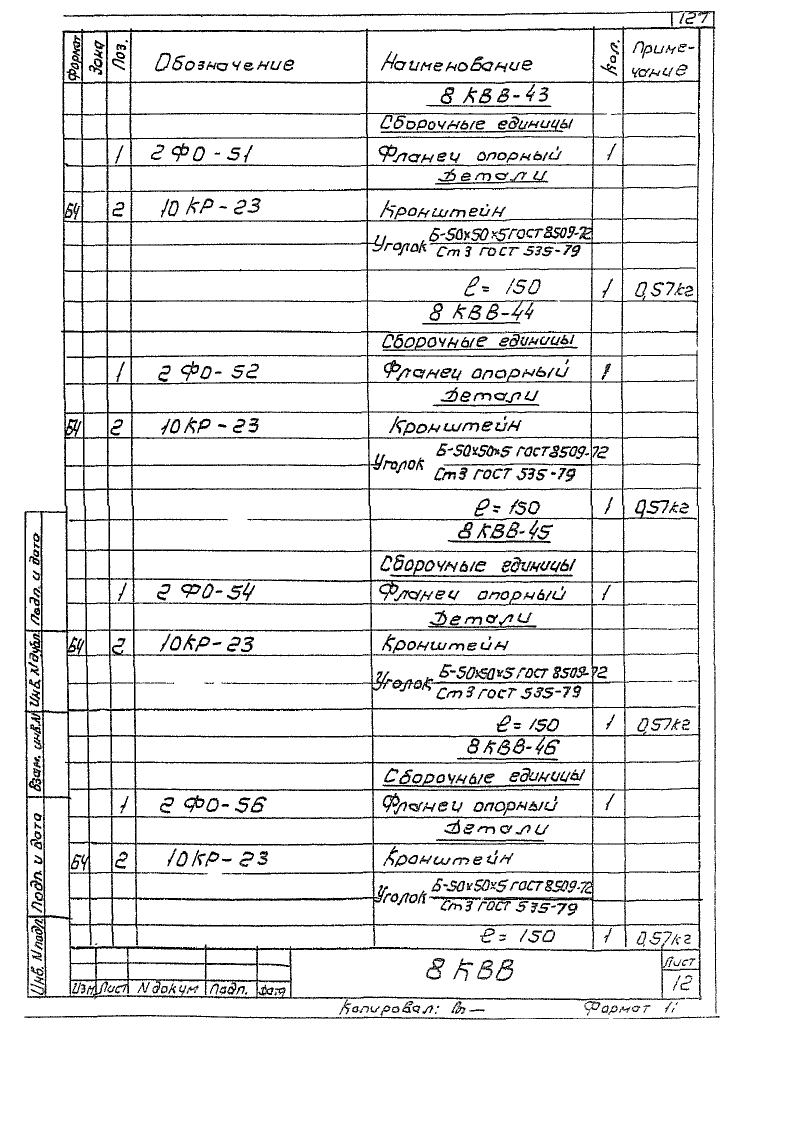 127
Формат Зона Поз. Обозначение Наименование Кол. Приме-
чание
8 КВВ-43
Сборочные единицы
1 2 ФО-51 Фланец опорный 1
Детали
БЧ 2 10 КР-23 Кронштейн
Уголок Б-50х50х5 ГОСТ 8509-72
Ст 3 ГОСТ 535-79
ℓ= 150 1 0,57кг
8 КВВ-44
Сборочные единицы
1 2 ФО-52 Фланец опорный 1
Детали
БЧ 2 10 КР-23 Кронштейн
Уголок Б-50х50х5 ГОСТ 8509-72
Ст 3 ГОСТ 535-79
ℓ= 150 1 0,57кг
8 КВВ-45
Сборочные единицы
1 2 ФО-54 Фланец опорный 1
Детали
БЧ 2 10КР-23 Кронштейн
Уголок Б-50х50х5 ГОСТ 8509-72
Ст 3 ГОСТ 535-79
ℓ= 150 1 0,57кг
8 КВВ-46
Сборочные единицы
1 2 ФО-56 Фланец опорный 1
Детали
БЧ 2 10КР-23 Кронштейн
Уголок Б-50х50х5 ГОСТ 8509-72
Ст 3 ГОСТ 535-79
ℓ= 150 1 0,57кг
Инв. N подл. Подп. и дата Взам. инв. N Инв. N дубл. Подп. и дата
Изм Лист N докум Подп. Дата
8 КВВ
Лист
12
Копировал:
Формат 11